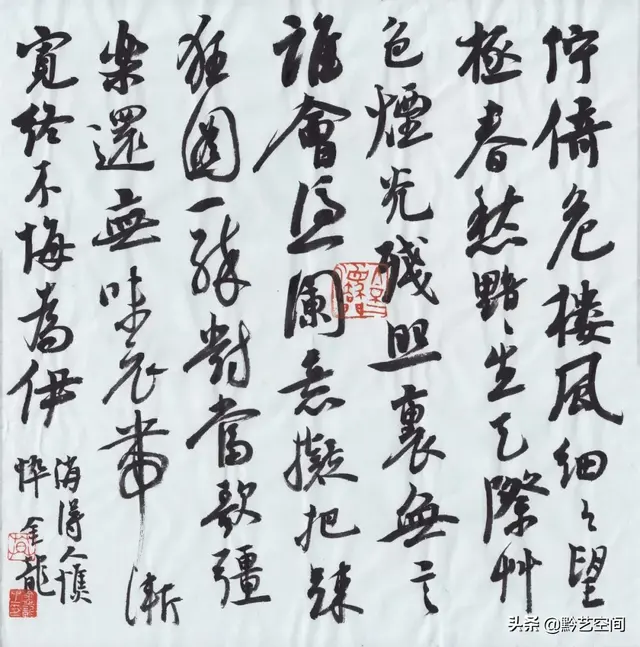 佇倚危楼風細々望
極春愁黯々生天際艸
色煙光殘照裏無言
誰會凭闌意擬把疎
狂圖一醉對當歌彊
樂還無味衣帶漸
寬終不悔為伊
消得人憔
悴 金龍
头条 @黔艺空间